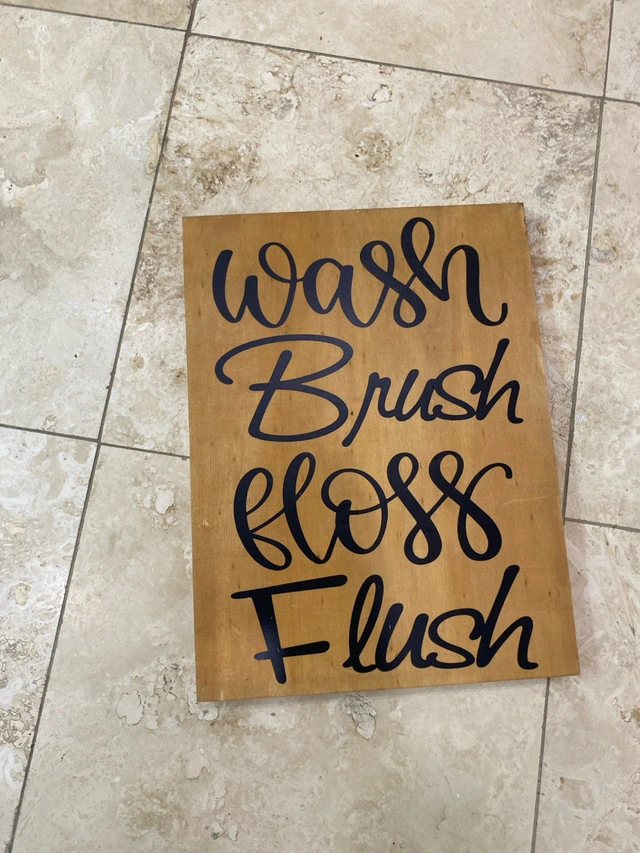 wash
Brush
floss
Flush